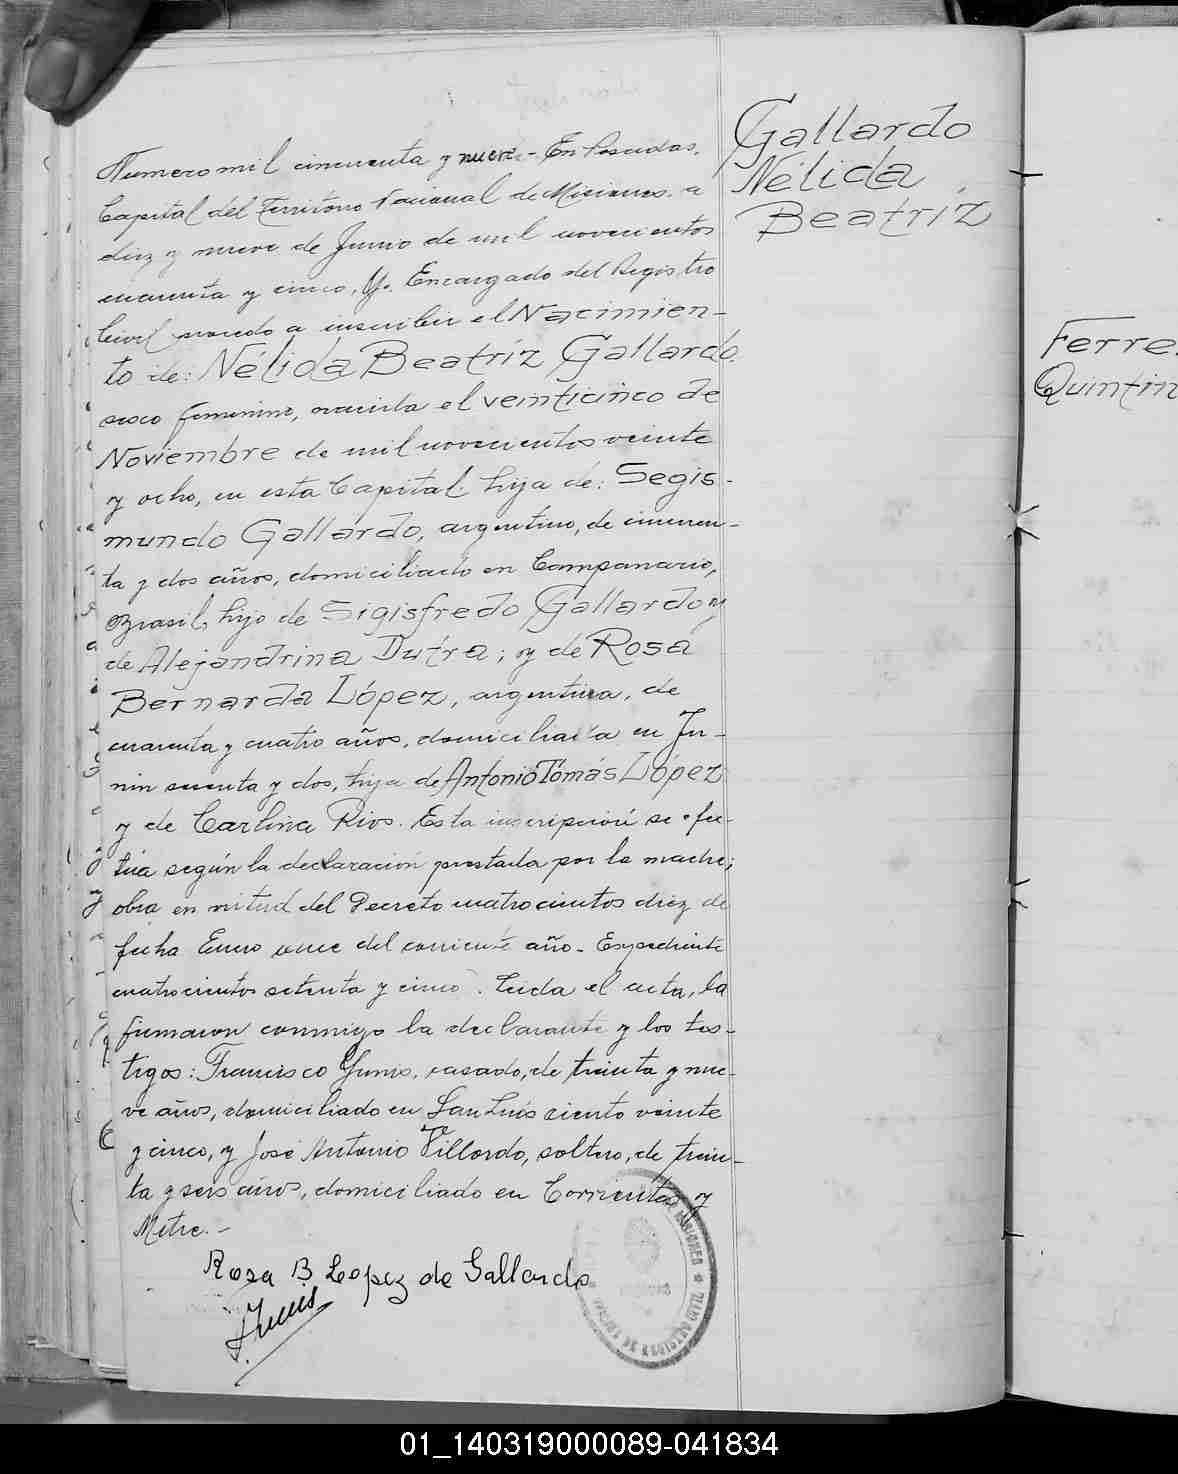 Numero mil cincuenta y nueve - En Posadas,
Capital del Territorio Nacional de Misiones, a
diez y nueve de Junio de mil novecientos
cuarenta y cinco, Yo Encargado del Registro
Civil procedo a inscribir el Nacimien-
to de: Nélida Beatríz Gallardo,
sexo femenino, nacida el veinticinco de
Noviembre de mil novecientos veinte
y ocho, en esta Capital, hija de: Segis-
mundo Gallardo, argentino, de cincuen-
ta y dos años, domiciliado en Campanario,
Brasil, hijo de Sigisfredo Gallardo y
de Alejandrina Dutra; y de Rosa
Bernarda López, argentina, de
cuarenta y cuatro años, domiciliada en Ju-
nin y dos, hija de Antonio Tomás López
y de Carlina Rios. Esta inscripción se efec-
túa según la declaración prestada por la madre;
obra en virtud del Decreto cuatrocientos diez de
fecha Enero once del corriente año - Expediente
cuatrocientos setenta y cinco. Leida el acta, la
firmaron conmigo la declarante y los tes-
tigos: Francisco Yunis, casado, de treinta y nue-
ve años, domiciliado en San Luis ciento veinte
y cinco, y José Antonio Villordo, soltero, de trein-
ta y seis años, domiciliado en Corrientes y
Mitre. -
Rosa B. Lopez de Gallardo
Gallardo
Nélida
Beatríz
Ferre
Quintin
01_140319000089-041834